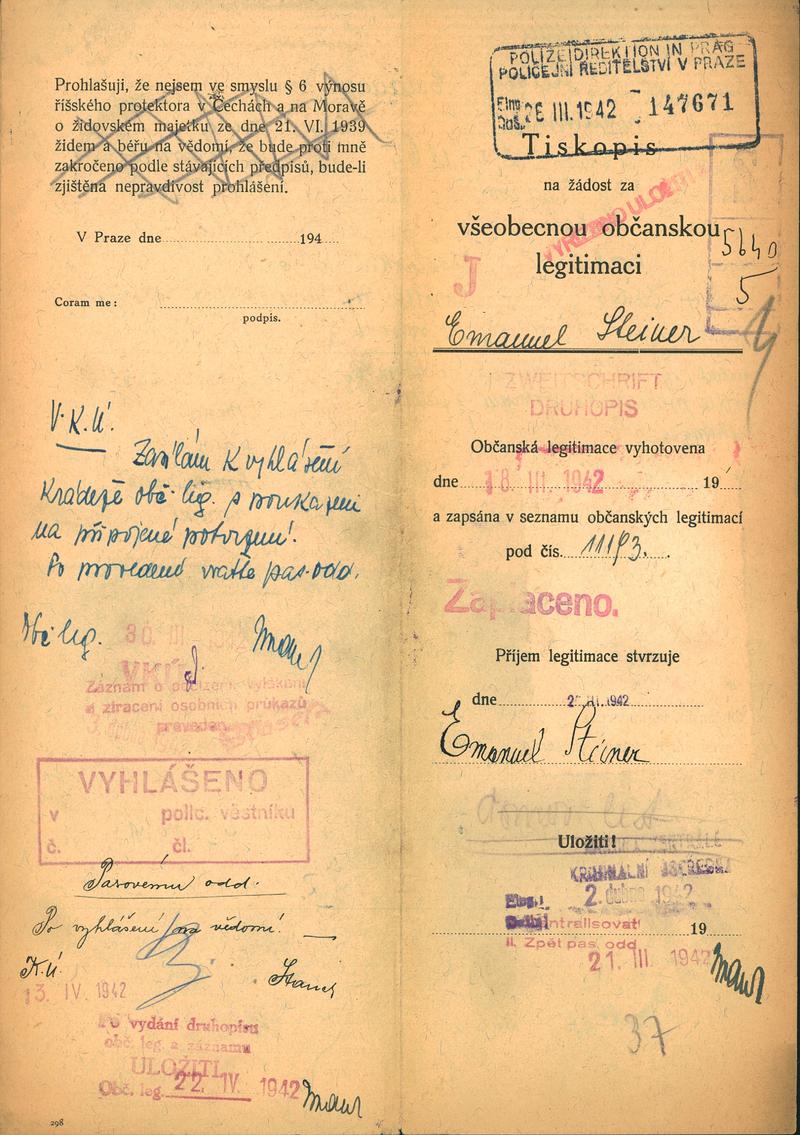 Prohlašuji, že nejsem ve smyslu § 6 výnosu
říšského protektora v Čechách a na Moravě
o židovském majetku ze dne 21. VI. 1939
židem a béřu na vědomí, že bude proti mně
zakročeno podle stávajících předpisů, bude-li
zjištěna nepravdivost prohlášení.
V Praze dne 194
Coram me:
podpis.
V.K.Ú.
Zasílám k vyhlášení
krádeže obč. leg. s poukazem
na připojené potvrzení.
Po provedení vraťte pas. odd.
Obč. leg.
30. III. 1942
VKÚ
Záznam o odcizení
a ztracení osobních průkazů
proveden
VYHLÁŠENO
v polic. věstníku
č. čl.
Pasovému odd.
Po vyhlášení na vědomí.
K.Ú.
13. IV. 1942
Po vydání druhopisu
obč. leg. a záznamu
ULOŽITI.
Obč. leg. 22. IV. 1942
298
POLIZEIDIREKTION IN PRAG
POLICEJNÍ ŘEDITELSTVÍ V PRAZE
26 III. 1942 147671
Tiskopis
na žádost za
všeobecnou občanskou
legitimaci
5640
5
J
Emanuel Steiner
ZWEITSCHRIFT
DRUHOPIS
Občanská legitimace vyhotovena
dne 18. III. 1942 19
a zapsána v seznamu občanských legitimací
pod čís. 1193.
Zaplaceno.
Příjem legitimace stvrzuje
dne III. 1942
Emanuel Steiner
domov. list
Uložiti!
KRIMINALNÍ ÚSTŘEDNA
2. dubna 1942
19
II. Zpět pas. odd.
21. III. 1942
37